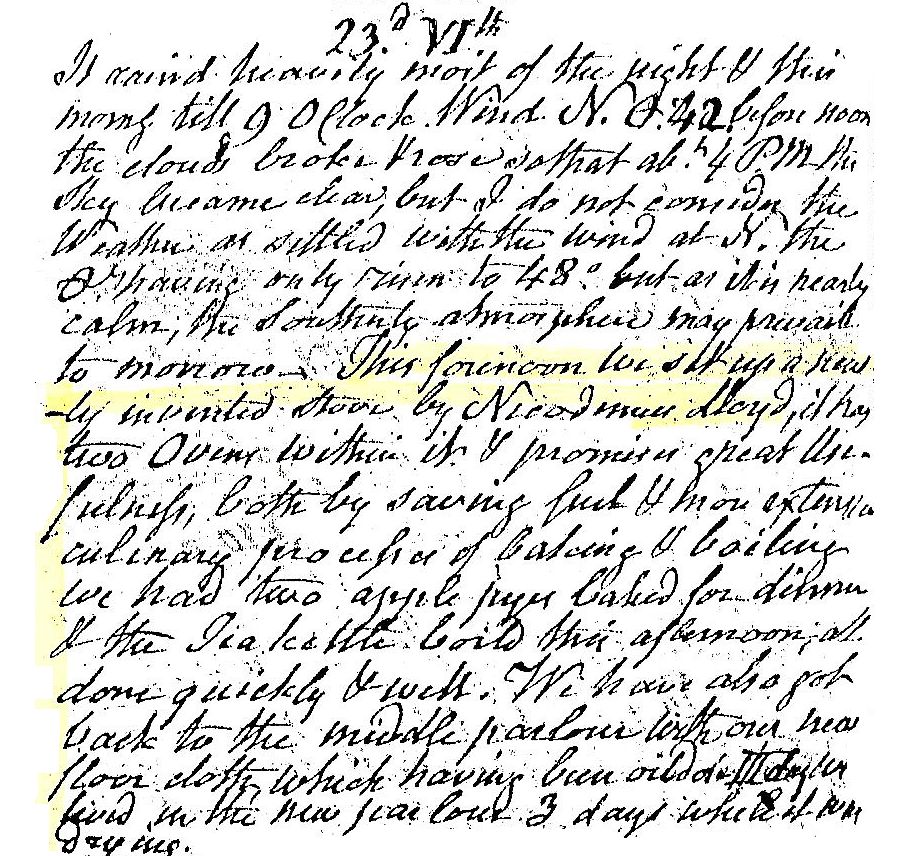 23.d VIth
It raind heavily most of the night & this
morng till 9 O Clock Wind N. & 42. before noon
the clouds broke & rose so that abt 4 PM the
Sky became clear, but I do not consider the
Weather as settled with the wind at N. the
having only risen to 48° but as it is nearly
calm, the Southerly atmosphere may prevail
to morrow — This forenoon we set up a new
-ly invented stove by Nicodemus Lloyd, it has
two Ovens within it & promises great Use-
fulness, both by saving fuel & more extensive
culinary processes of baking & boiling
we had two apple pyes baked for dinner
& the Teakettle boild this afternoon, all
done quickly & well. We have also got
back to the middle parlour with our new
floor cloth, which having been oild
lived in the new parlour 3 days while it was
drying.